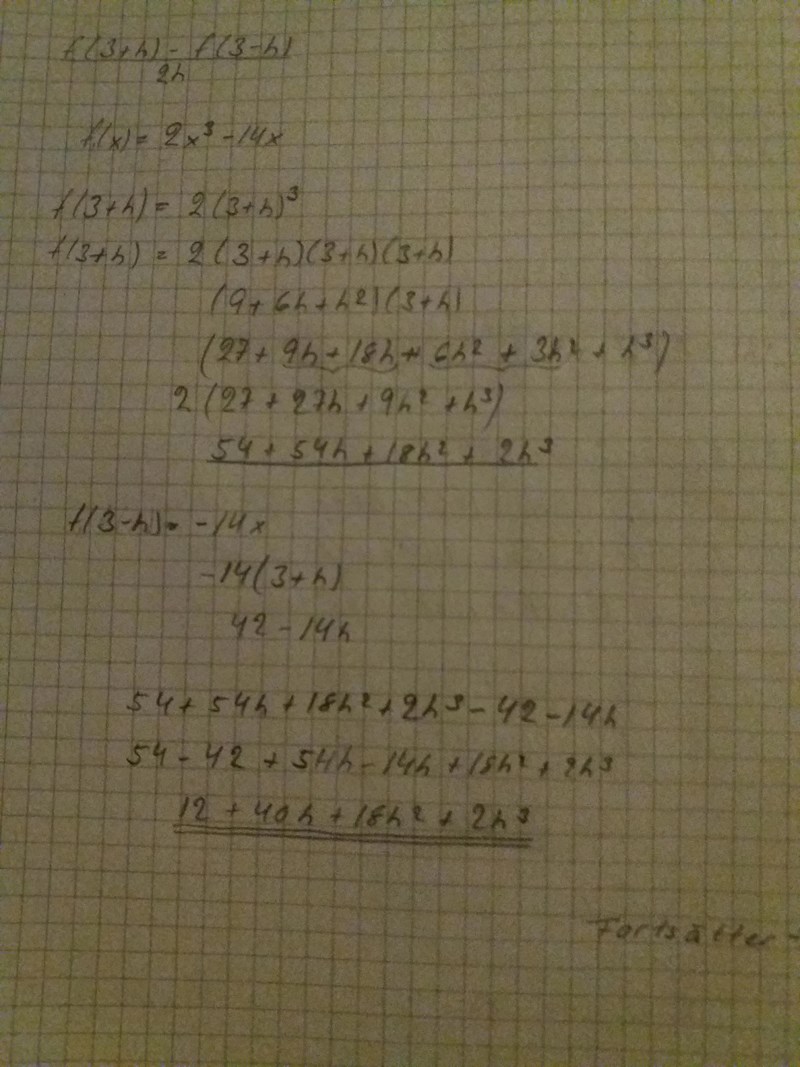 f(3+h) - f(3-h)
2h
f(x) = 2x³ - 14x
f(3+h) = 2(3+h)³
f(3+h) = 2(3+h)(3+h)(3+h)
(9+6h+h²)(3+h)
(27 + 9h + 18h + 6h² + 3h² + h³)
2(27 + 27h + 9h² + h³)
54 + 54h + 18h² + 2h³
f(3-h) = -14x
-14(3+h)
42 - 14h
54 + 54h + 18h² + 2h³ - 42 - 14h
54 - 42 + 54h - 14h + 18h² + 2h³
12 + 40h + 18h² + 2h³
Fortsätter -